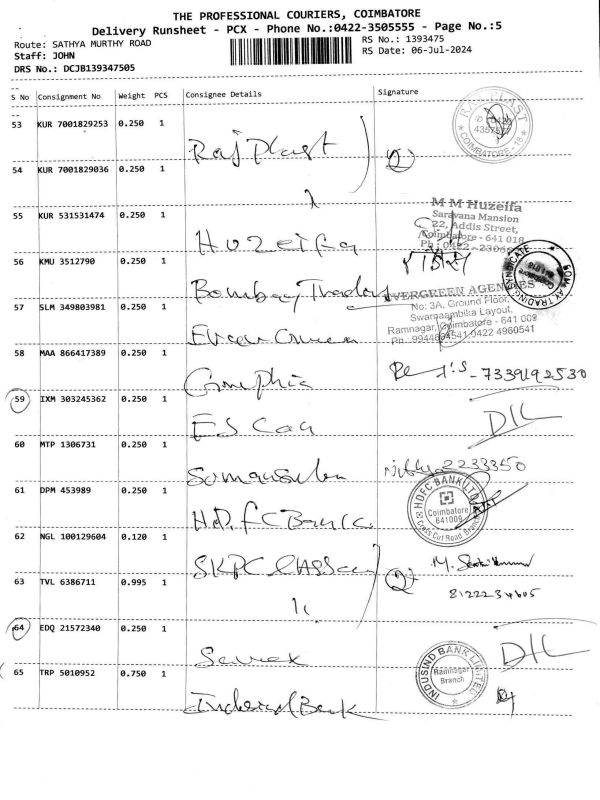 THE PROFESSIONAL COURIERS, COIMBATORE
Delivery Runsheet - PCX - Phone No.:0422-3505555 - Page No.:5
Route: SATHYA MURTHY ROAD
RS No.: 1393475
Staff: JOHN
RS Date: 06-Jul-2024
DRS No.: DCJB139347505
S No Consignment No Weight PCS Consignee Details Signature
53 KUR 7001829253 0.250 1
Raj Plast
RAJ PLAST
COIMBATORE - 18
54 KUR 7001829036 0.250 1
55 KUR 531531474 0.250 1
Huzeifa
M M Huzeifa
Saravana Mansion
22, Addis Street,
Coimbatore - 641 018
56 KMU 3512790 0.250 1
Bombay Traders
BOMBAY TRADING SYNDICATE
57 SLM 349803981 0.250 1
Evergreen
EVERGREEN AGENCIES
No: 3A, Ground Floor,
Swarnaambika Layout,
Ramnagar, Coimbatore - 641 009
58 MAA 866417389 0.250 1
Graphic
7339192530
59 IXM 303245362 0.250 1
DIL
60 MTP 1306731 0.250 1
2233350
61 DPM 453989 0.250 1
HDFC Bank
HDFC BANK LTD
Coimbatore
641009
Cross Cut Road Branch
62 NGL 100129604 0.120 1
63 TVL 6386711 0.995 1
64 EDQ 21572340 0.250 1
DIL
65 TRP 5010952 0.750 1
Indusind Bank
INDUSIND BANK LIMITED
Ramnagar
Branch